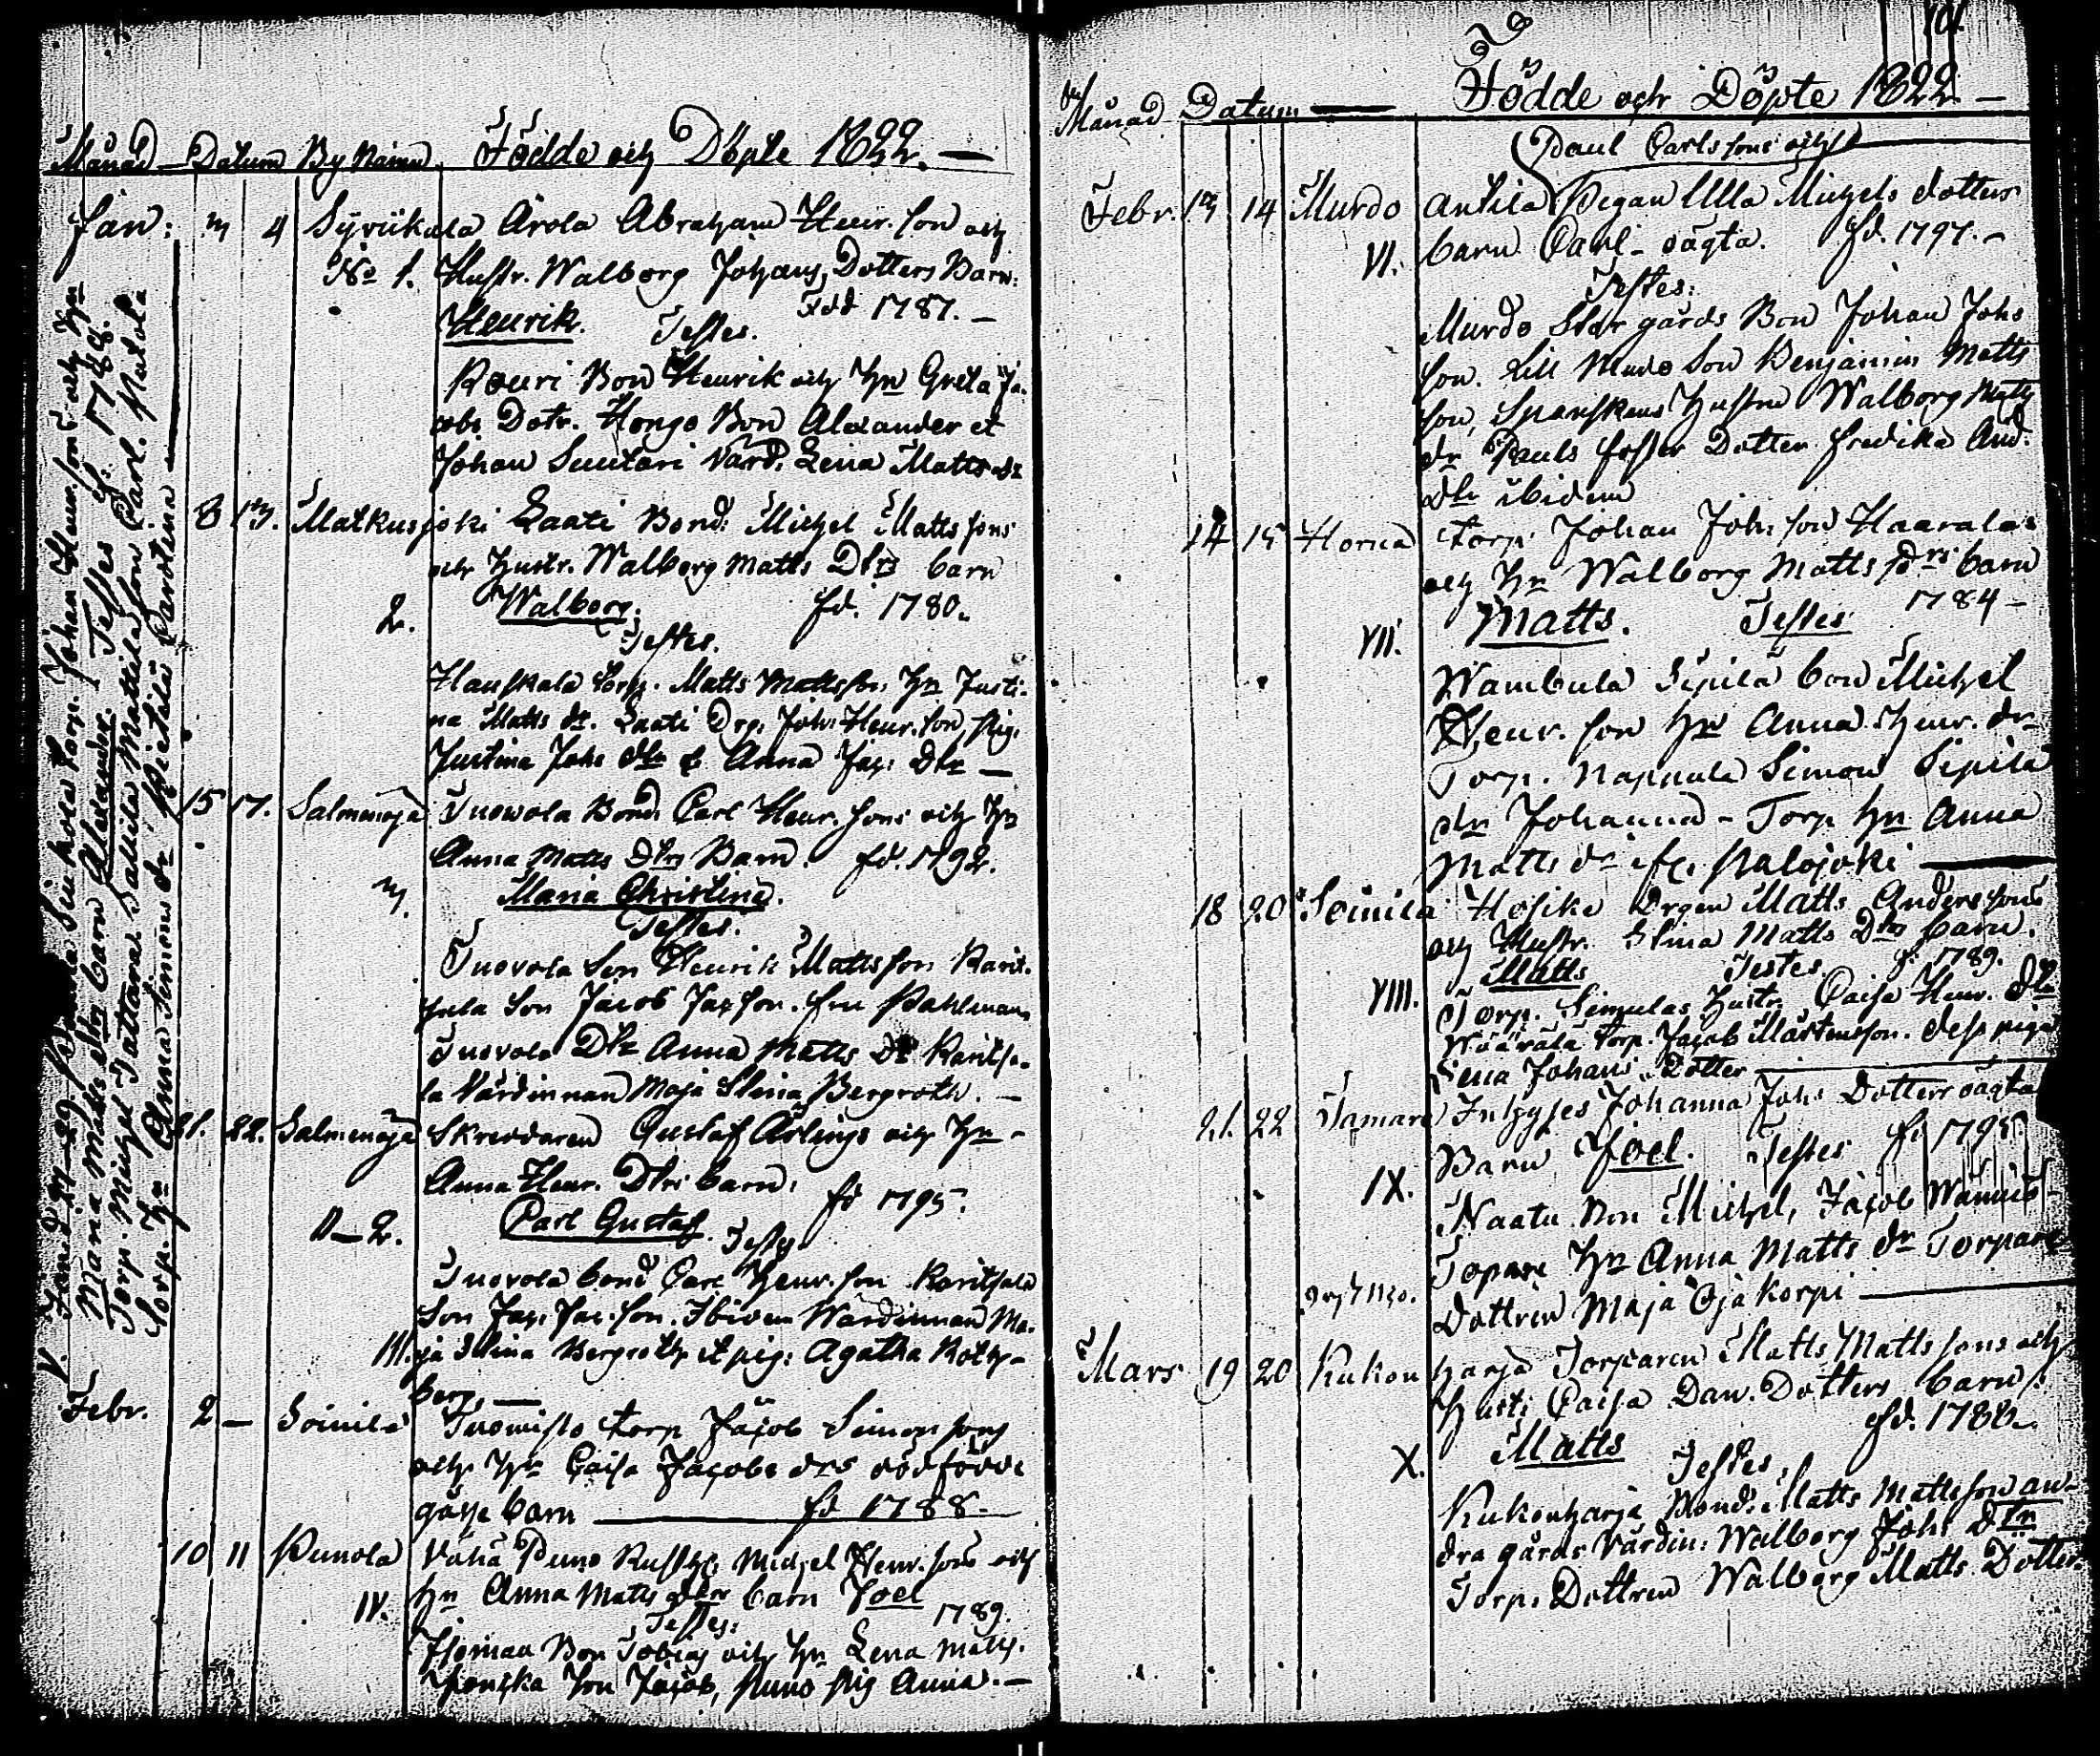 Månad Datum By Namn Födde och Döpte 1822.
Jan: 3 4 Syvükula Ärola Abraham Henr. son och
No 1. Hustr. Walborg Johans Dotters Barn:
Henrik. Född 1787.
Testes.
Rouri Bon Henrik och Hn Greta Ja-
cobs Dotr. Hongo Bon Alexander et
Johan Suutari Värd. Lena Matts dr
8 13. Matkusjoki Laati Bond: Michel Mattssons
och Hustr. Walborg Matts Dtrs barn
2. Walborg. fd. 1780.
Testes.
Torp. Matts Mattsson, Hn Justi-
na Matts dr. Laati Drg. Joh: Henr. son, Pig.
Justina Johs dtr & Anna Jac: Dtr
15 17. Salmenoja Tuovola Bond. Carl Henr. sons och Hn
Anna Matts Dtrs Barn. fd. 1792.
3. Maria Christina.
Testes.
Tuovola Son Henrik Mattsson Karit-
sala Son Jacob Jacson. Pahlman,
Tuovola Dtr Anna Matts Dr Karitsa-
la Värdinnan Maja Stina Bergroth.
21. 22. Salmenoja Skreddaren Gustaf Ärlings och Hn
Anna Henr. Dtrs barn.
2. Carl Gustaf. fd 1795.
Testes
Tuovola bond Carl Henr. son Karitsala
Son Jac. Jac. son. Ibidem Wärdinnan Ma-
III. ja Stina Bergroth et pig: Agatha Roth-
berg.
Febr. 2 Soinila Tuomisto torp Jacob Simonssons
och Hn Caisa Jacobs drs dödfödde
gåsse barn fd 1788
10 11 Punola Vähä Puno Rusth: Michel Henr. sons och
IV. Hn Anna Matts dtrs barn Joel
Testes: 1789.
Bon Tobias och Hn Lena Matts.
Son Jacob, Puno Pig Anna.
V. 29. Torp. Johan Henr. sons och Hn
Maria Matts dtrs barn Alexander. Testes f. 1788.
Torp. Michel Mattila son Carl.
Torp. Hn Anna Simons dr Pietilä Carolina
Månad Datum Födde och Döpte 1822
Paul Carlssons och
Febr. 13 14 Murdo Antila Pigan Ulla Michels dotters
VI. barn Carl oägta. fd. 1797.
Testes:
Murdo Stor gårds Bon Johan Johs
son. Lill Murdo Son Benjamin Matts
son, Hustru Walborg Matts
dr Pauls foster Dotter Fredika And.
dtr ibidem
14 15 Horna Torp. Johan Johs son Haarala
och Hn Walborg Mattsdrs barn
VII. Matts. Testes 1784
Wambula Sipilä bon Michel
Henr. son Hn Anna Henr. dr
Torp. Simon Sipilä
dr Johanna Torp Hn Anna
Matts dr Palojoki
18 20 Soinila Hosike Drgen Matts Anderssons
och Hustr. Stina Matts Dtrs barn.
VIII. Matts Testes f. 1789.
Torp. Simulas Hustr. Caisa Henr. Dtr
Wäärälä Torp. Jacob Mårtensson. dess piga
Lena Johans Dotter
21. 22 Johanna Johs Dotters oägta
IX. Barn Joel. Testes fd 1795
Naatu Bon Michel, Jacob
Topare Hn Anna Matts dr Torpare
Dottren Maja Ojakorpi
Mars 19 20 Kukonharja Torparen Matts Mattssons och
Hustr. Caisa Dan. Dotters barn.
X. Matts fd. 1780.
Testes.
Kukonharja Bond. Matts Mattsson an-
dra gårds Värdin: Walborg Johs dtr
Torp. Dottren Walborg Matts Dotter.